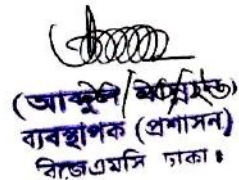 (আব্দুল
ব্যবস্থাপক (প্রশাসন)
বিজেএমসি ঢাকা।